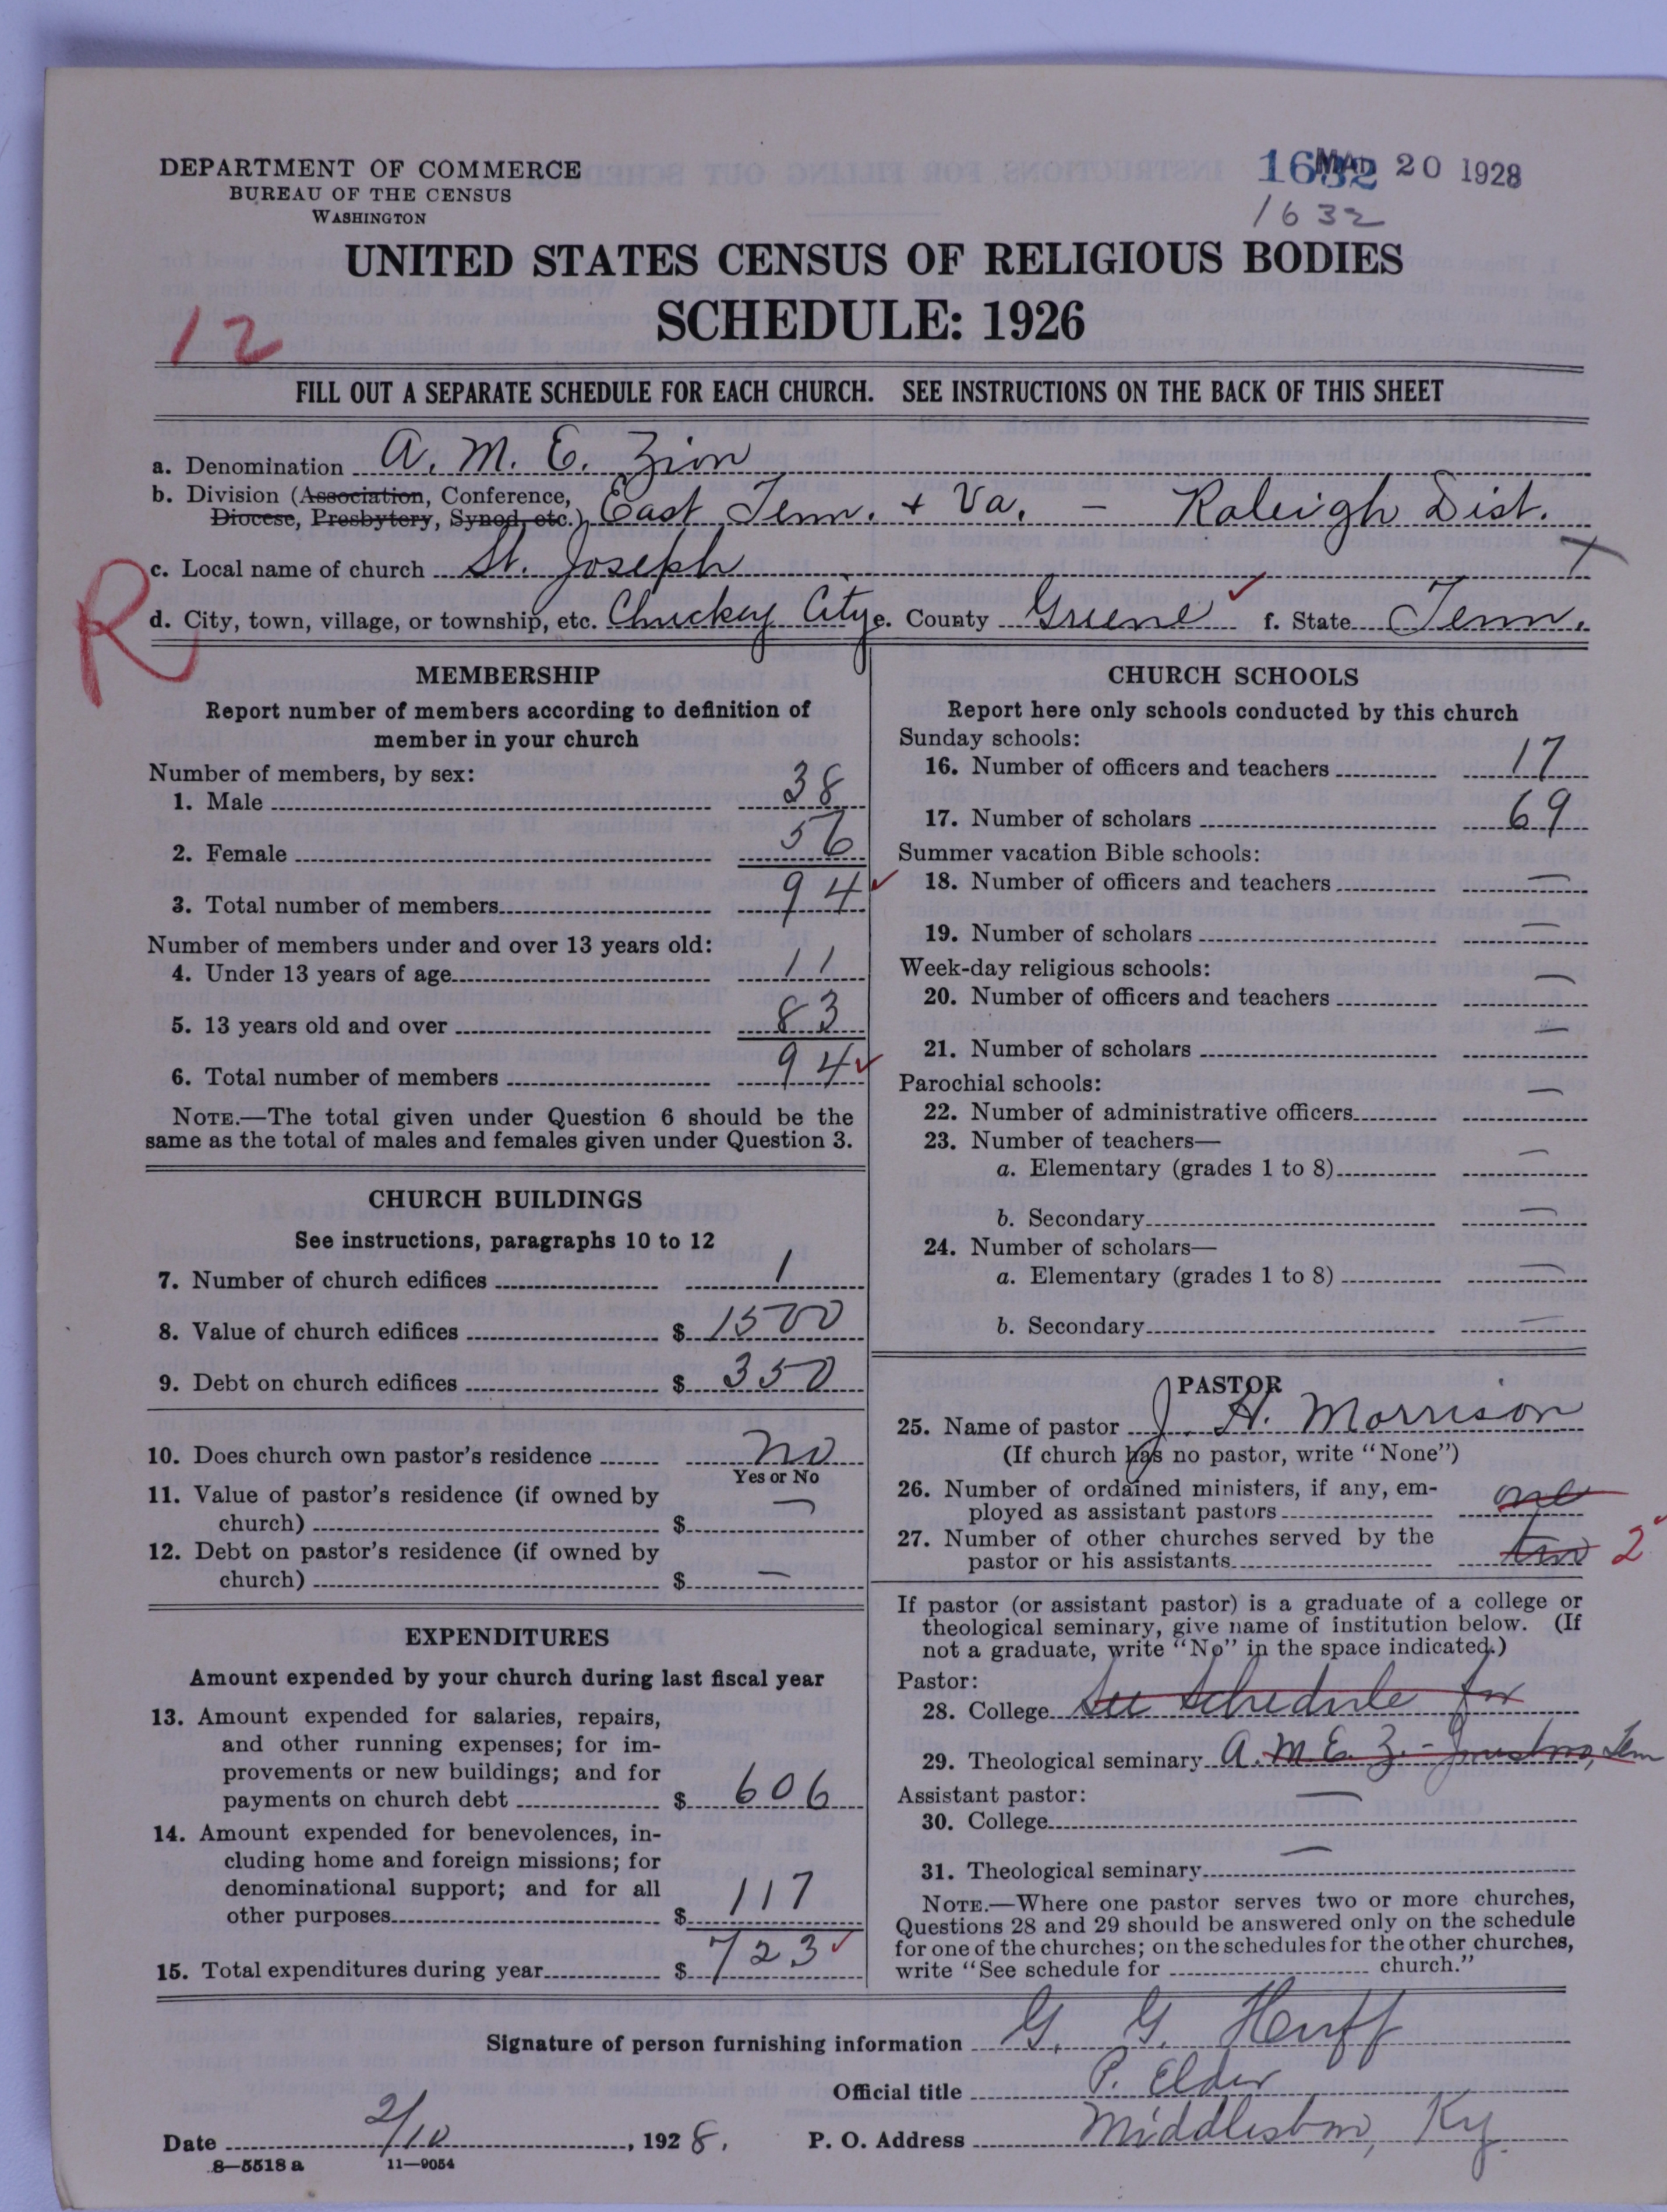 DEPARTMENT OF COMMERCE
BUREAU OF THE CENSUS
WASHINGTON
1632 MAR 20 1928
1632
UNITED STATES CENSUS OF RELIGIOUS BODIES
SCHEDULE: 1926
12
FILL OUT A SEPARATE SCHEDULE FOR EACH CHURCH. SEE INSTRUCTIONS ON THE BACK OF THIS SHEET
a. Denomination A. M. E. Zion
b. Division (Association, Conference,
Diocese, Presbytery, Synod, etc.) East Tenn. + Va. - Raleigh Dist.
c. Local name of church St. Joseph
R
d. City, town, village, or township, etc. Chuckey City e. County Greene f. State Tenn.
MEMBERSHIP
Report number of members according to definition of
member in your church
Number of members, by sex:
1. Male 38
2. Female 56
3. Total number of members 94
Number of members under and over 13 years old:
4. Under 13 years of age 11
5. 13 years old and over 83
6. Total number of members 94
NOTE.—The total given under Question 6 should be the
same as the total of males and females given under Question 3.
CHURCH BUILDINGS
See instructions, paragraphs 10 to 12
7. Number of church edifices 1
8. Value of church edifices $ 1500
9. Debt on church edifices $ 350
10. Does church own pastor's residence no
Yes or No
11. Value of pastor's residence (if owned by
church) $ —
12. Debt on pastor's residence (if owned by
church) $ —
EXPENDITURES
Amount expended by your church during last fiscal year
13. Amount expended for salaries, repairs,
and other running expenses; for im-
provements or new buildings; and for
payments on church debt $ 606
14. Amount expended for benevolences, in-
cluding home and foreign missions; for
denominational support; and for all
other purposes $ 117
15. Total expenditures during year $ 723
CHURCH SCHOOLS
Report here only schools conducted by this church
Sunday schools:
16. Number of officers and teachers 17
17. Number of scholars 69
Summer vacation Bible schools:
18. Number of officers and teachers —
19. Number of scholars —
Week-day religious schools:
20. Number of officers and teachers —
21. Number of scholars —
Parochial schools:
22. Number of administrative officers —
23. Number of teachers—
a. Elementary (grades 1 to 8) —
b. Secondary —
24. Number of scholars—
a. Elementary (grades 1 to 8) —
b. Secondary —
PASTOR
25. Name of pastor J. H. Morrison
(If church has no pastor, write "None")
26. Number of ordained ministers, if any, em-
ployed as assistant pastors one
27. Number of other churches served by the
pastor or his assistants two 2
If pastor (or assistant pastor) is a graduate of a college or
theological seminary, give name of institution below. (If
not a graduate, write "No" in the space indicated.)
Pastor:
28. College See Schedule for
29. Theological seminary A. M. E. Z. - Tenn
Assistant pastor: —
30. College
31. Theological seminary —
NOTE.—Where one pastor serves two or more churches,
Questions 28 and 29 should be answered only on the schedule
for one of the churches; on the schedules for the other churches,
write "See schedule for church."
Signature of person furnishing information G. G. Huff
Official title P. Elder
Date 2/10, 1928. P. O. Address Middlesboro, Ky.
8—5518 a 11—9054